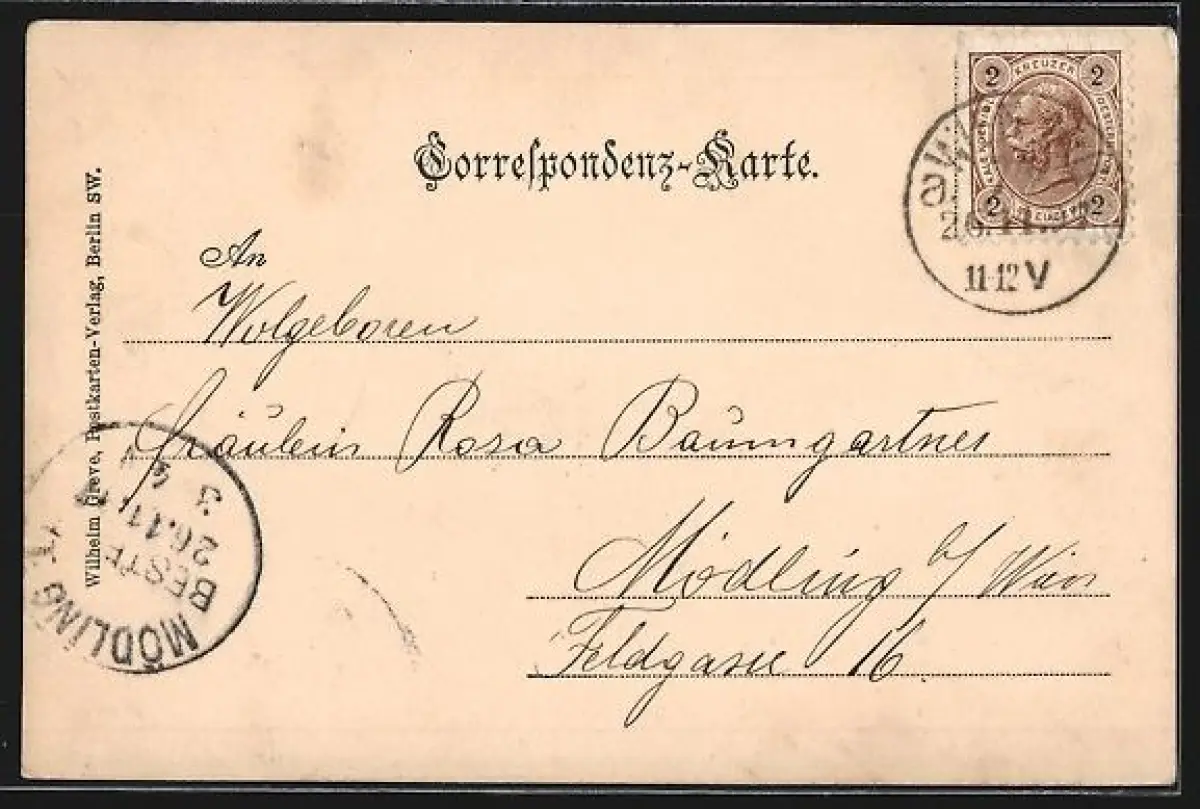 Correspondenz-Karte.
2 KREUZER 2
2 2
26.11
11-12 V
An
Wolgeboren
Fräulein Rosa Baumgartner
Mödling b/ Wien
Feldgasse 16
Wilhelm Greve, Postkarten-Verlag, Berlin SW.
MÖDLING 1
BESTE
26.11
3